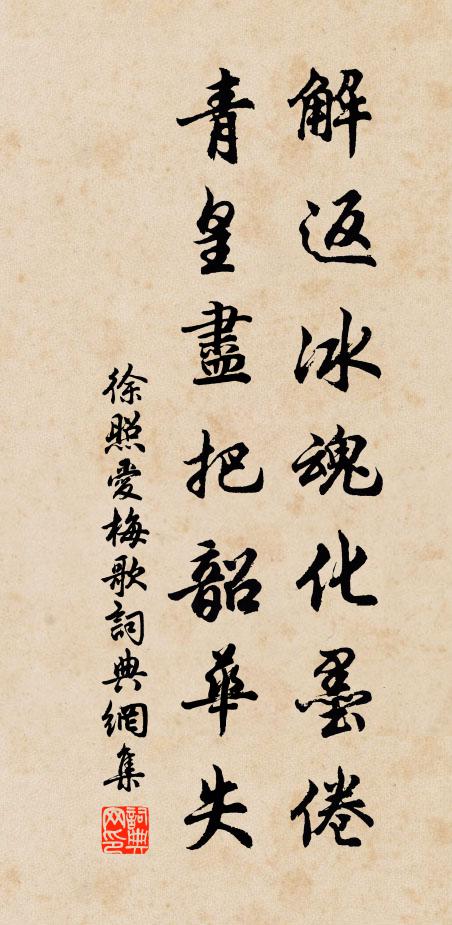 解返冰魂化墨倦
青皇盡把韶華失
徐照愛梅歌詞典網集
詞典网印